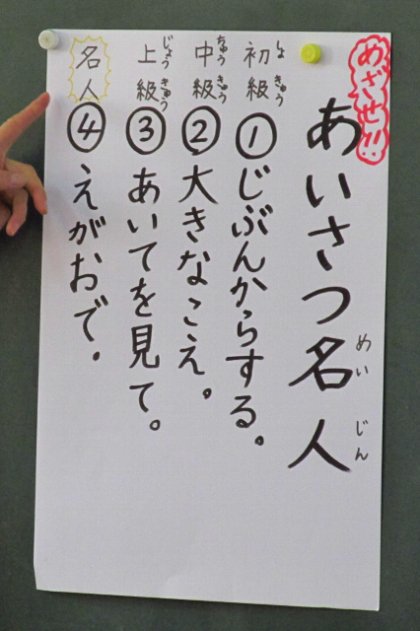 めざせ!!
あいさつ名人
めいじん
初級 ①じぶんからする。
しょきゅう
中級 ②大きなこえ。
ちゅうきゅう
上級 ③あいてを見て。
じょうきゅう
名人 ④えがおで。